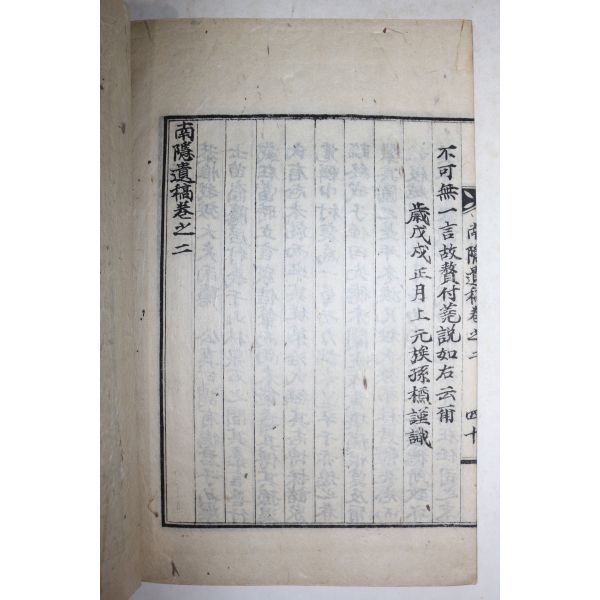 南隱遺稿卷之二 四十
不可無一言故贅付蕘說如右云爾
歲戊戌正月上元族孫謹識
南隱遺稿卷之二